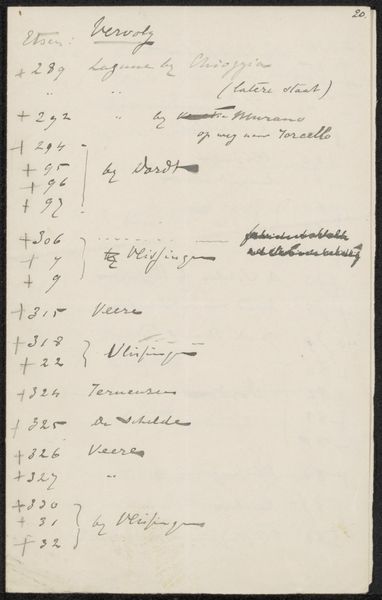 20.
Etsen: Vervolg
+ 289 Lagune by Chioggia
" " (latere staat)
+ 292 " by Murano
op weg naar Torcello
+ 294
+ 95 by Dordt
+ 96
+ 97
+ 306
+ 7 by Vlissingen
+ 9
+ 315 Veere
+ 318
+ 22 Vlissingen
+ 324 Terneuzen
+ 325 De Schelde
+ 326 Veere
+ 327 "
+ 330
+ 31 by Vlissingen
+ 32